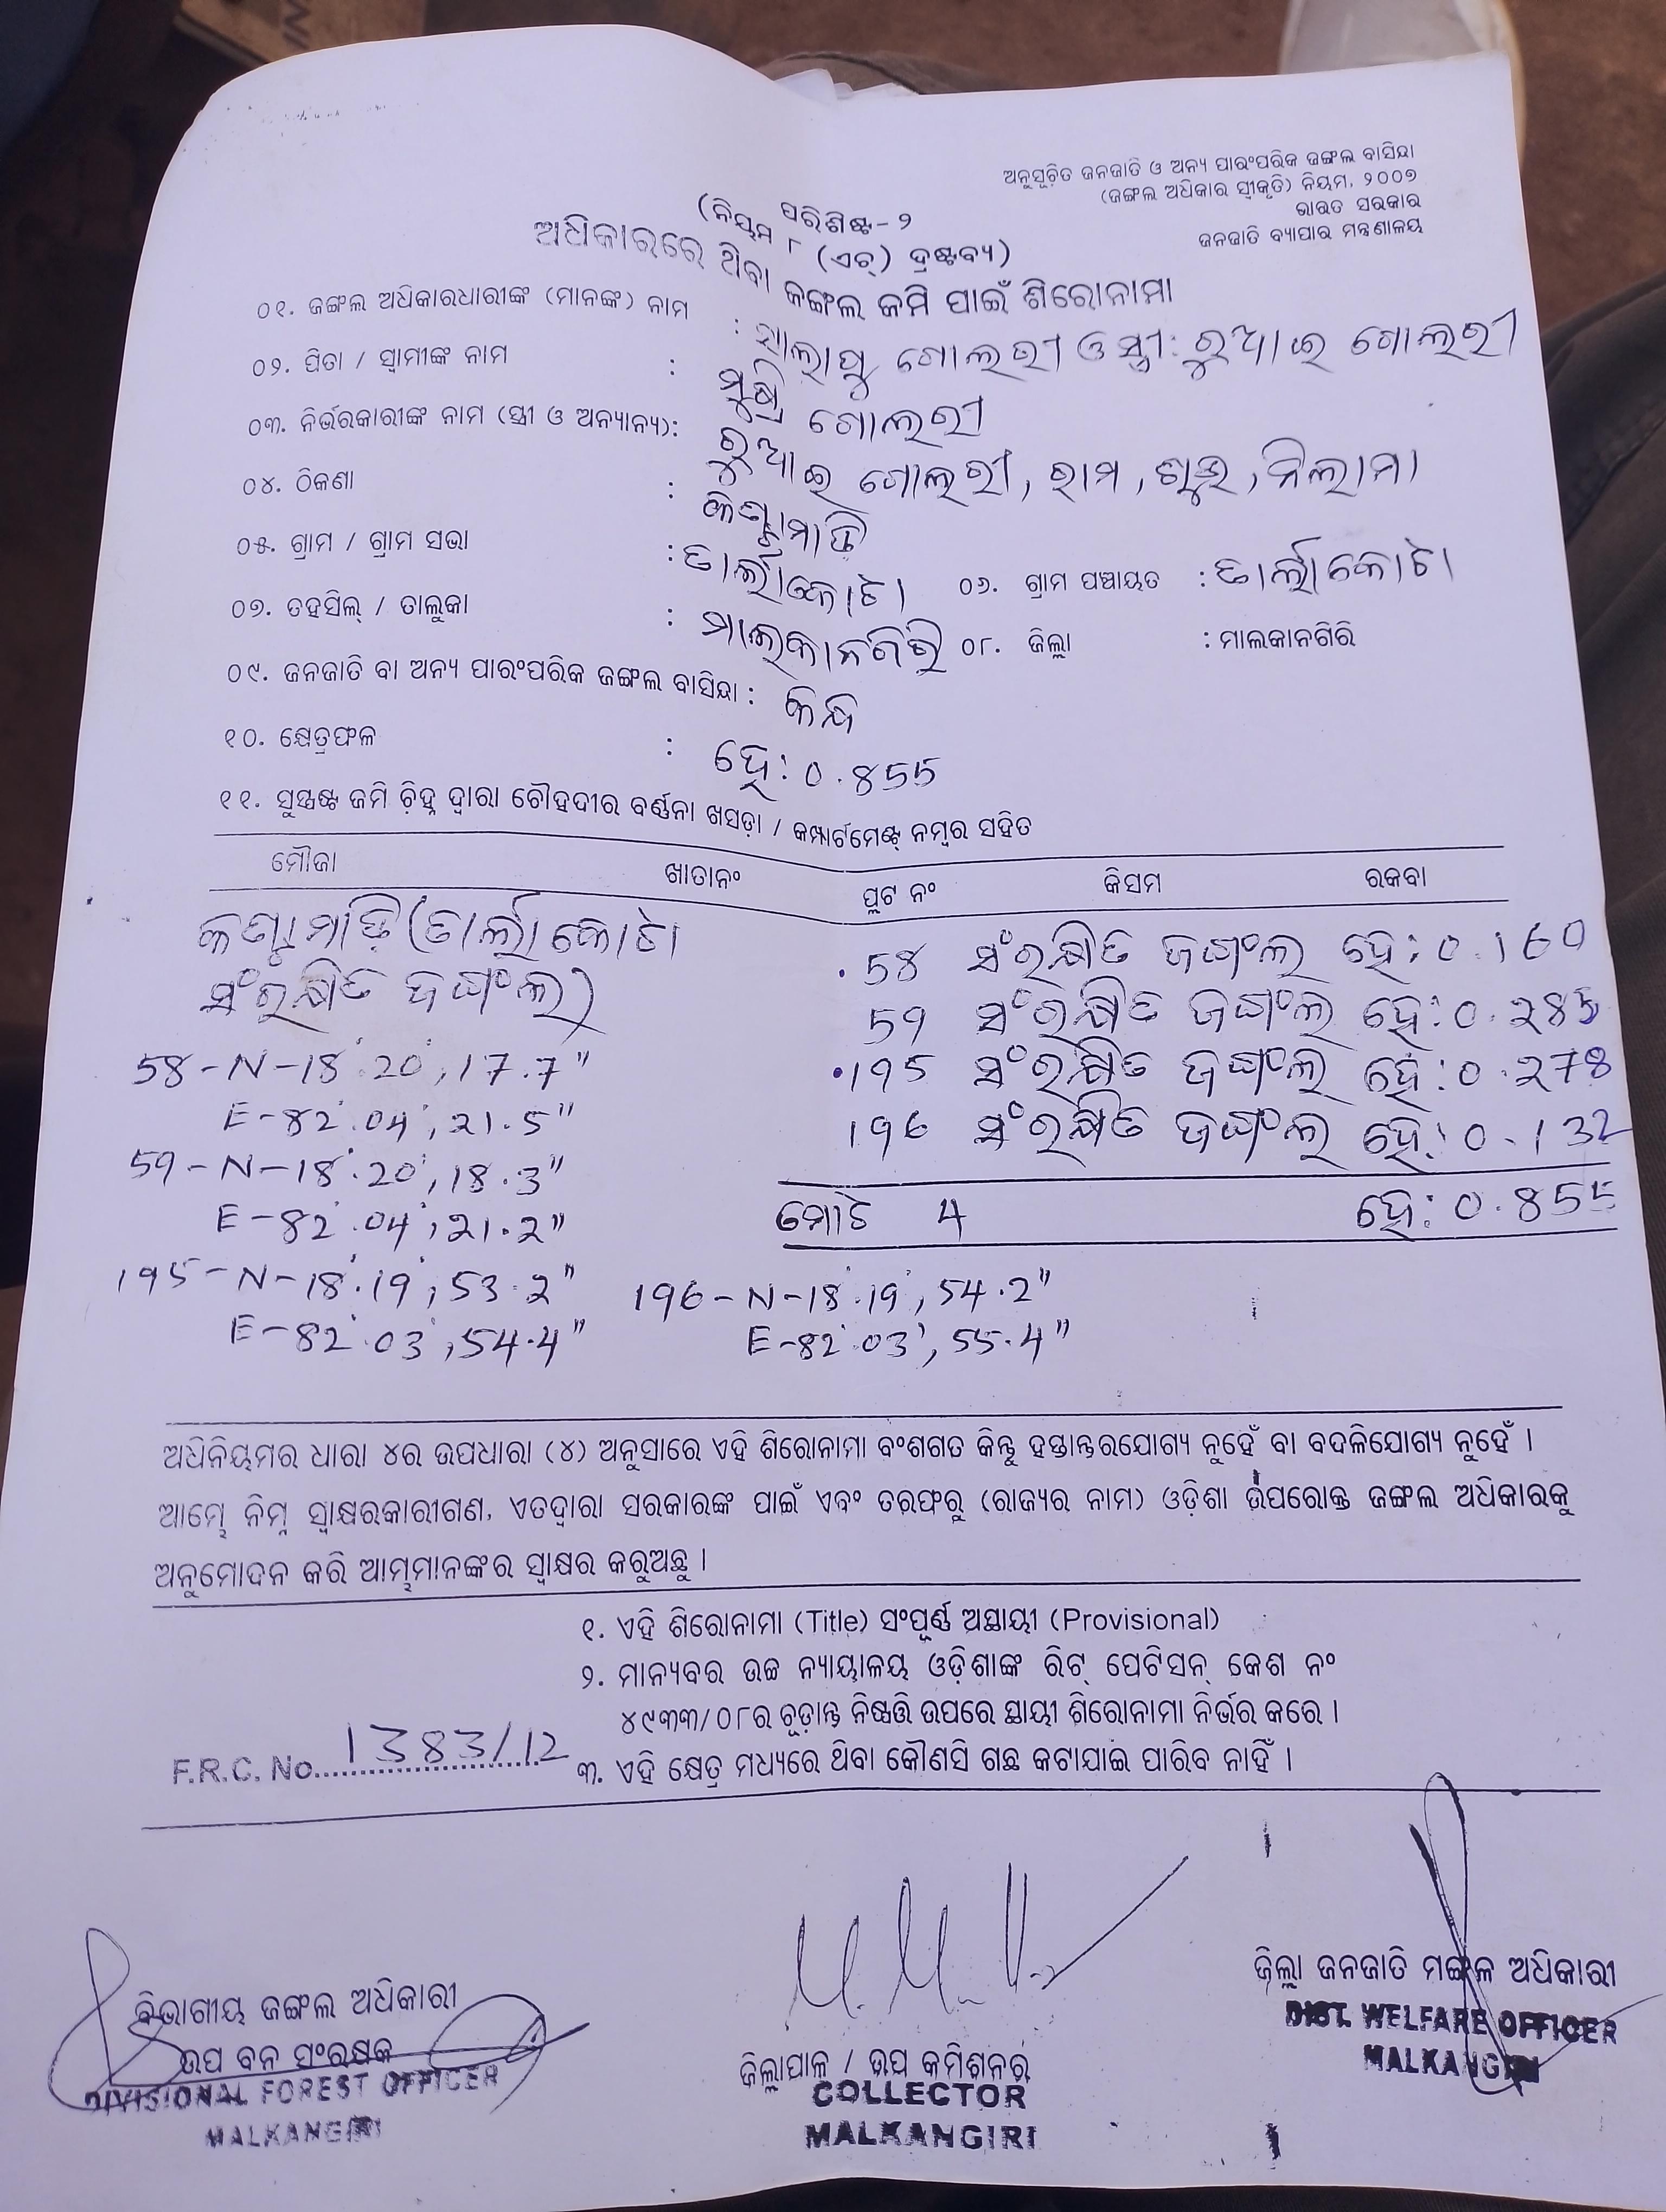 ଅନୁସୂଚିତ ଜନଜାତି ଓ ଅନ୍ୟ ପାରଂପରିକ ଜଙ୍ଗଲ ବାସିନ୍ଦା
(ଜଙ୍ଗଲ ଅଧିକାର ସ୍ୱୀକୃତି) ନିୟମ, ୨୦୦୭
ଭାରତ ସରକାର
ଜନଜାତି ବ୍ୟାପାର ମନ୍ତ୍ରଣାଳୟ
ପରିଶିଷ୍ଟ - ୨
(ନିୟମ ୮ (ଏଚ୍) ଦ୍ରଷ୍ଟବ୍ୟ)
ଅଧିକାରରେ ଥିବା ଜଙ୍ଗଲ ଜମି ପାଇଁ ଶିରୋନାମା
୦୧. ଜଙ୍ଗଲ ଅଧିକାରଧାରୀଙ୍କ (ମାନଙ୍କ) ନାମ : ଗୋଲରୀ ଓ ସ୍ତ୍ରୀ: ରୁଆଇ ଗୋଲରୀ
୦୨. ପିତା / ସ୍ୱାମୀଙ୍କ ନାମ : ଗୋଲରୀ
୦୩. ନିର୍ଭରକାରୀଙ୍କ ନାମ (ସ୍ତ୍ରୀ ଓ ଅନ୍ୟାନ୍ୟ): ରୁଆଇ ଗୋଲରୀ, ରାମ, ନିଲାମା
୦୪. ଠିକଣା :
୦୫. ଗ୍ରାମ / ଗ୍ରାମ ସଭା : ତାର୍ଲାକୋଟା ୦୬. ଗ୍ରାମ ପଞ୍ଚାୟତ : ତାର୍ଲାକୋଟା
୦୭. ତହସିଲ୍ / ତାଲୁକା : ମାଲକାନଗିରି ୦୮. ଜିଲ୍ଲା : ମାଲକାନଗିରି
୦୯. ଜନଜାତି ବା ଅନ୍ୟ ପାରଂପରିକ ଜଙ୍ଗଲ ବାସିନ୍ଦା :
୧୦. କ୍ଷେତ୍ରଫଳ : ହେ: 0.855
୧୧. ସୁସ୍ପଷ୍ଟ ଜମି ଚିହ୍ନ ଦ୍ୱାରା ଚୌହଦୀର ବର୍ଣ୍ଣନା ଖସଡ଼ା / କମ୍ପାର୍ଟମେଣ୍ଟ୍ ନମ୍ବର ସହିତ
ମୌଜା ଖାତାନଂ ପ୍ଲଟ ନଂ କିସମ ରକବା
(ତାର୍ଲାକୋଟା
ସଂରକ୍ଷିତ ଜଙ୍ଗଲ)
58 ସଂରକ୍ଷିତ ଜଙ୍ଗଲ ହେ: 0.160
59 ସଂରକ୍ଷିତ ଜଙ୍ଗଲ ହେ: 0.285
195 ସଂରକ୍ଷିତ ଜଙ୍ଗଲ ହେ: 0.278
196 ସଂରକ୍ଷିତ ଜଙ୍ଗଲ ହେ: 0.132
ମୋଟ 4 ହେ: 0.855
58-N-18°.20', 17.7"
E-82°.04', 21.5"
59-N-18°.20', 18.3"
E-82°.04', 21.2"
195-N-18°.19', 53.2"
E-82°.03', 54.4"
196-N-18°.19', 54.2"
E-82°.03', 55.4"
ଅଧିନିୟମର ଧାରା ୪ର ଉପଧାରା (୪) ଅନୁସାରେ ଏହି ଶିରୋନାମା ବଂଶଗତ କିନ୍ତୁ ହସ୍ତାନ୍ତରଯୋଗ୍ୟ ନୁହେଁ ବା ବଦଳିଯୋଗ୍ୟ ନୁହେଁ ।
ଆମ୍ଭେ ନିମ୍ନ ସ୍ୱାକ୍ଷରକାରୀଗଣ, ଏତଦ୍ୱାରା ସରକାରଙ୍କ ପାଇଁ ଏବଂ ତରଫରୁ (ରାଜ୍ୟର ନାମ) ଓଡ଼ିଶା ଉପରୋକ୍ତ ଜଙ୍ଗଲ ଅଧିକାରକୁ
ଅନୁମୋଦନ କରି ଆମ୍ଭମାନଙ୍କର ସ୍ୱାକ୍ଷର କରୁଅଛୁ ।
୧. ଏହି ଶିରୋନାମା (Title) ସଂପୂର୍ଣ୍ଣ ଅସ୍ଥାୟୀ (Provisional)
୨. ମାନ୍ୟବର ଉଚ୍ଚ ନ୍ୟାୟାଳୟ ଓଡ଼ିଶାଙ୍କ ରିଟ୍ ପେଟିସନ୍ କେଶ ନଂ
୪୯୩୩/୦୮ର ଚୂଡ଼ାନ୍ତ ନିଷ୍ପତ୍ତି ଉପରେ ସ୍ଥାୟୀ ଶିରୋନାମା ନିର୍ଭର କରେ ।
୩. ଏହି କ୍ଷେତ୍ର ମଧ୍ୟରେ ଥିବା କୌଣସି ଗଛ କଟାଯାଇ ପାରିବ ନାହିଁ ।
F.R.C. No. 1383/12
ବିଭାଗୀୟ ଜଙ୍ଗଲ ଅଧିକାରୀ
ଉପ ବନ ସଂରକ୍ଷକ
DIVISIONAL FOREST OFFICER
MALKANGIRI
ଜିଲ୍ଲାପାଳ / ଉପ କମିଶନର୍
COLLECTOR
MALKANGIRI
ଜିଲ୍ଲା ଜନଜାତି ମଙ୍ଗଳ ଅଧିକାରୀ
DIST. WELFARE OFFICER
MALKANGIRI